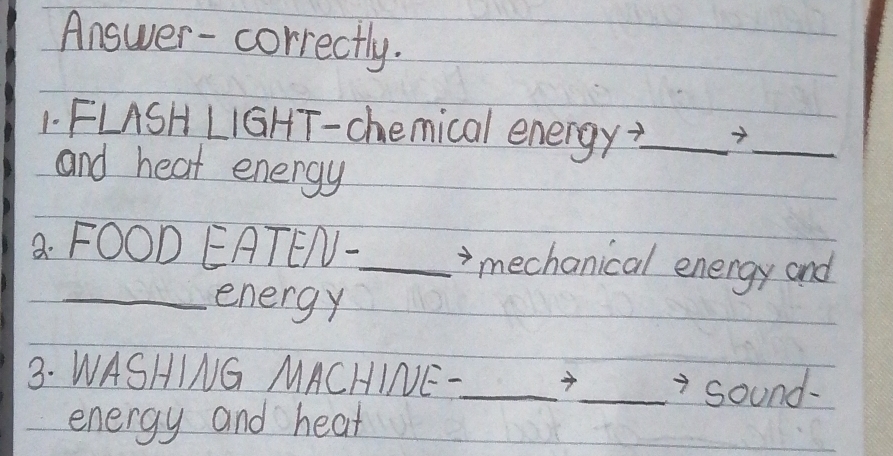 Answer- correctly.
1. FLASH LIGHT-chemical energy→____→____
and heat energy
2. FOOD EATEN-____→mechanical energy and
____energy
3. WASHING MACHINE-____→____→sound-
energy and heat